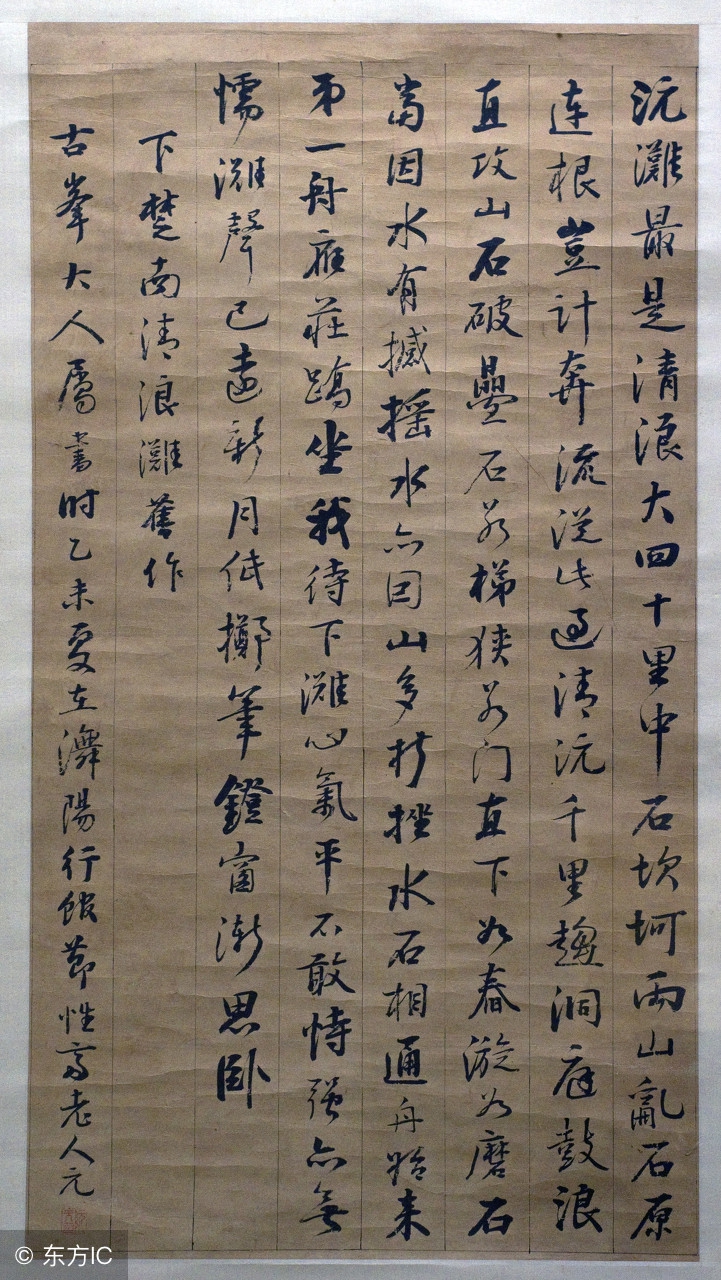 沅灘最是清浪大四十里中石坎坷兩山亂石原
连根豈計奔流從此過清沅千里趨洞庭鼓浪
直攻山石破疊石若梯狹若门直下如舂漩如磨石
當因水有撼搖水亦因山多折挫水石相通舟始来
弟一舟應莊蹻坐我待下灘心氣平不敢恃强亦無
懦灘聲已遠新月低擲筆鐙窗漸思卧
下楚南清浪灘舊作
古峯大人屬書时乙未夏在㵲陽行館節性斋老人元
© 东方IC